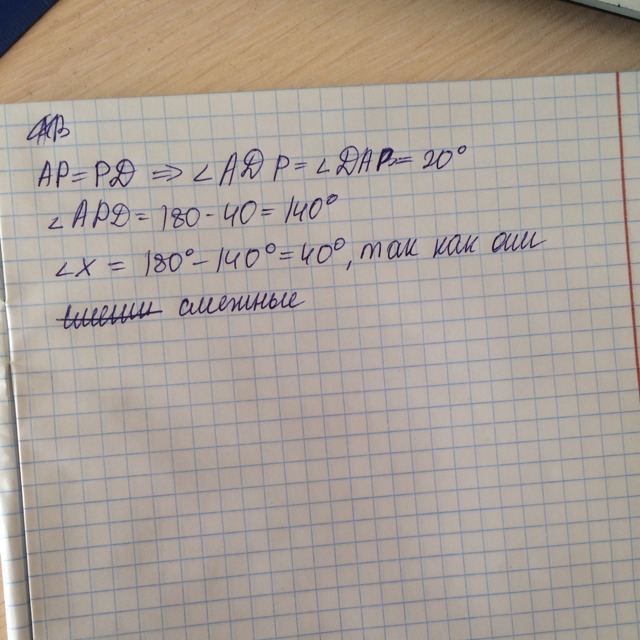 AP = PD ⇒ ∠ADP = ∠DAP = 20°
∠APD = 180 - 40 = 140°
∠X = 180° - 140° = 40°, так как они
смежные